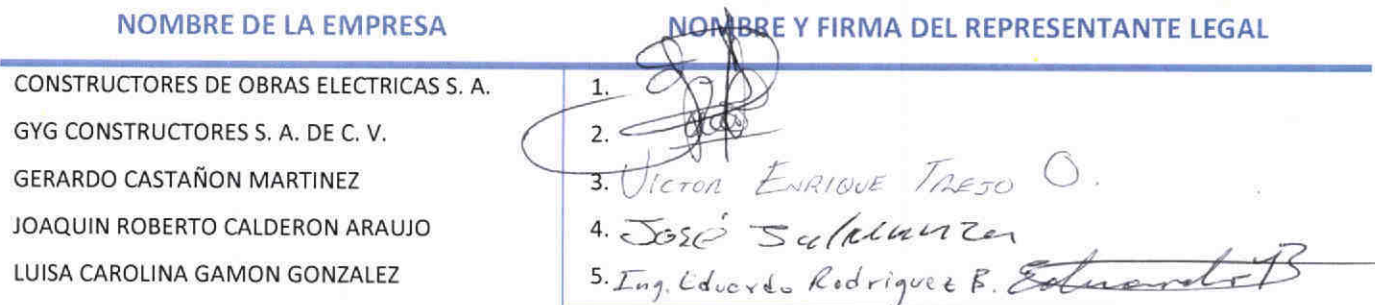 NOMBRE DE LA EMPRESA NOMBRE Y FIRMA DEL REPRESENTANTE LEGAL
CONSTRUCTORES DE OBRAS ELECTRICAS S. A. 1.
GYG CONSTRUCTORES S. A. DE C. V. 2.
GERARDO CASTAÑON MARTINEZ 3. VICTOR ENRIQUE TREJO O.
JOAQUIN ROBERTO CALDERON ARAUJO 4. José
LUISA CAROLINA GAMON GONZALEZ 5. Ing. Eduardo Rodriguez B.